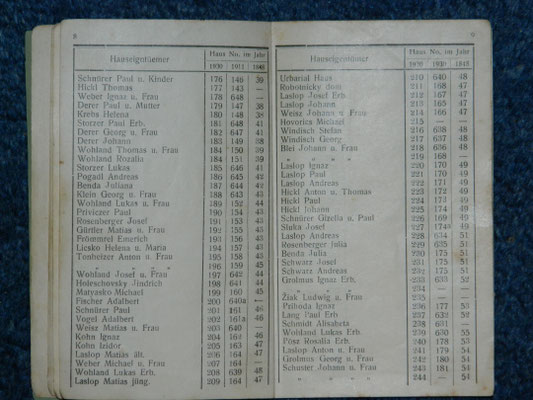 8
Hauseigentümer
Haus No. im Jahr
1930 1911 1848
Schnürer Paul u. Kinder 176 146 39
Hickl Thomas 177 143 —
Weber Ignaz u. Frau 178 648 —
Derer Paul u. Mutter 179 147 38
Krebs Helena 180 148 38
Storzer Paul Erb. 181 648 41
Derer Georg u. Frau 182 647 41
Derer Johann 183 149 38
Wohland Thomas u. Frau 184 150 39
Wohland Rozalia 184 151 39
Storzer Lukas 185 646 41
Pogadl Andreas 186 645 42
Benda Juliana 187 644 42
Klein Georg u. Frau 188 643 43
Wohland Lukas u. Frau 189 152 44
Priviczer Paul 190 154 43
Rosenberger Josef 191 153 43
Gürtler Matias u. Frau 192 155 43
Frömmrel Emerich 193 156 43
Licsko Helena u. Maria 194 157 43
Tonheizer Anton u. Frau 195 158 45
" " " 196 159 45
Wohland Josef u. Frau 197 642 44
Holeschovsky Jindrich 198 641 44
Matyasko Michael 199 160 45
Fischer Adalbert 200 640a —
Schnürer Paul 201 161 46
Vogel Adalbert 202 161a 46
Weisz Matias u. Frau 203 640 —
Kohn Ignatz 204 162 46
Kohn Izidor 205 163 47
Laslop Matias ält. 206 164 47
Weber Michael u. Frau 207 164 —
Wohland Lukas Erb. 208 639 48
Laslop Matias jüng. 209 164 47
9
Hauseigentümer
Haus No. im Jahr
1930 1911 1848
Urbarial Haus 210 640 48
Robotnicky dom 211 168 47
Laslop Josef Erb. 212 167 47
Laslop Johann 213 165 47
Weisz Johann u. Frau 214 166 47
Hovorics Michael 215 — —
Windisch Stefan 216 638 48
Windisch Georg 217 637 48
Blei Johann u. Frau 218 636 48
" " " 219 168 —
Laslop Ignaz 220 170 49
Laslop Paul 221 170 49
Laslop Andreas 222 171 49
Hickl Anton u. Thomas 223 172 49
Hickl Paul 224 173 49
Hickl Johann 225 174 49
Schnürer Gizella u. Paul 226 169 49
Sluka Josef 227 174a 49
Laslop Andreas 228 634 51
Rosenberger Julia 229 635 51
Benda Julia 230 175 51
Schwarz Josef 231 175 51
Schwarz Andreas 232 175 51
Grolmus Ignaz Erb. 233 633 52
" " " 234 — —
Žiak Ludwig u. Frau 235 — —
Prihoda Ignaz 236 177 53
Lang Paul Erb 237 632 52
Schmidt Alisabeta 238 631 —
Wohland Lukas Erb. 239 630 55
Pösz Rosalia Erb. 240 178 53
Laslop Anton u. Frau 241 179 54
Grolmus Georg u. Frau 242 180 54
Schuster Johann u. Frau 243 181 54
" " " 244 — 54